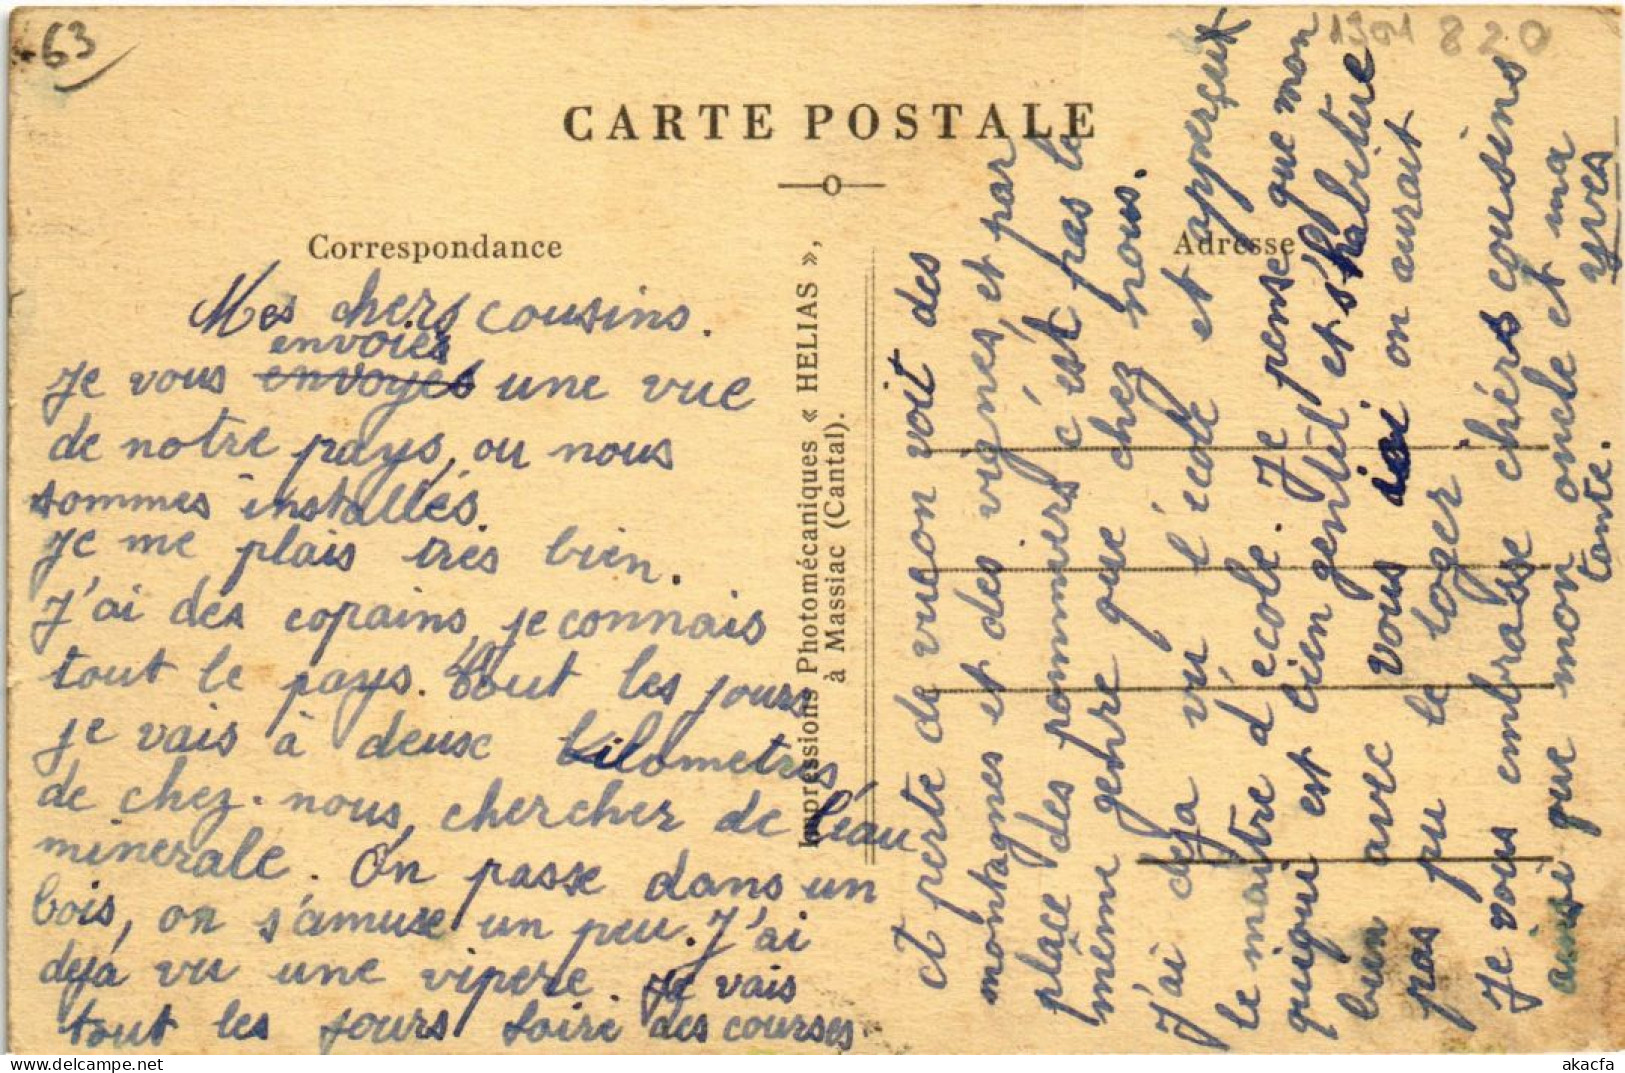 63
1301 820
CARTE POSTALE
Correspondance
Adresse
Impressions Photomécaniques « HELIAS »,
à Massiac (Cantal).
Mes chers cousins.
envoies
Je vous envoyes une vue
de notre pays, ou nous
sommes installés.
Je me plais très bien.
J'ai des copains, je connais
tout le pays. tout les jours
je vais à deux kilometres
de chez-nous, chercher de l'éau
minerale. On passe dans un
bois, on s'amuse un peu. J'ai
dejà vu une vipere. Je vais
tout les jours faire des courses
et perte de vue on voit des
montagnes et des vignes, et par
place des pommiers c'est pas le
même genre que chez nous.
J'ai deja vu l'école et apperçut
le maitre d'école. Je pense que mon
quiqui est bien gentil et s'habitue
bien avec vous ici on aurait
pas pu le loger
Je vous embrasse chers cousins
ainsi que mon oncle et ma
tante. yves
akacfa